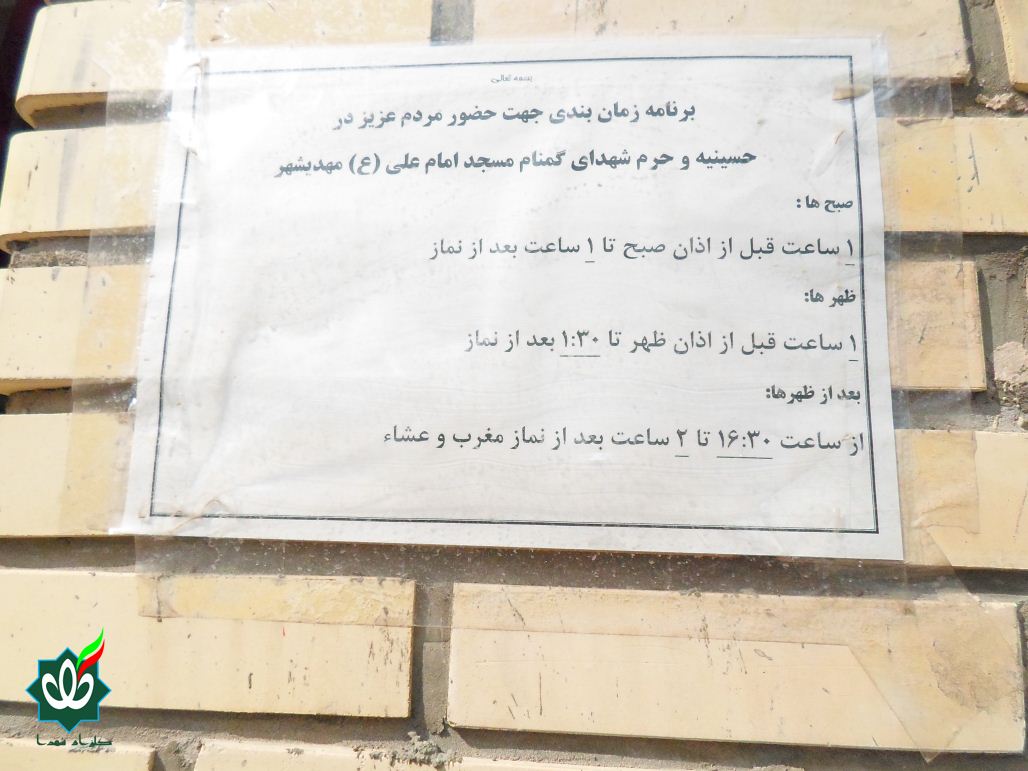 بسمه تعالی
برنامه زمان بندی جهت حضور مردم عزیز در
حسینیه و حرم شهدای گمنام مسجد امام علی (ع) مهدیشهر
صبح ها :
۱ ساعت قبل از اذان صبح تا ۱ ساعت بعد از نماز
ظهر ها:
۱ ساعت قبل از اذان ظهر تا ۱:۳۰ بعد از نماز
بعد از ظهرها:
از ساعت ۱۶:۳۰ تا ۲ ساعت بعد از نماز مغرب و عشاء